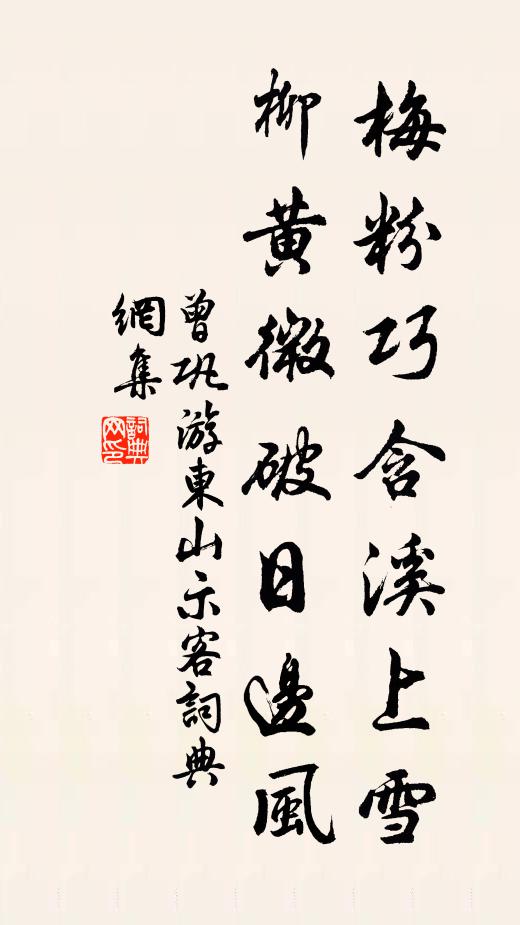 梅粉巧含溪上雪
柳黃微破日邊風
曾鞏游東山示客詞典
網集
詞典
网印